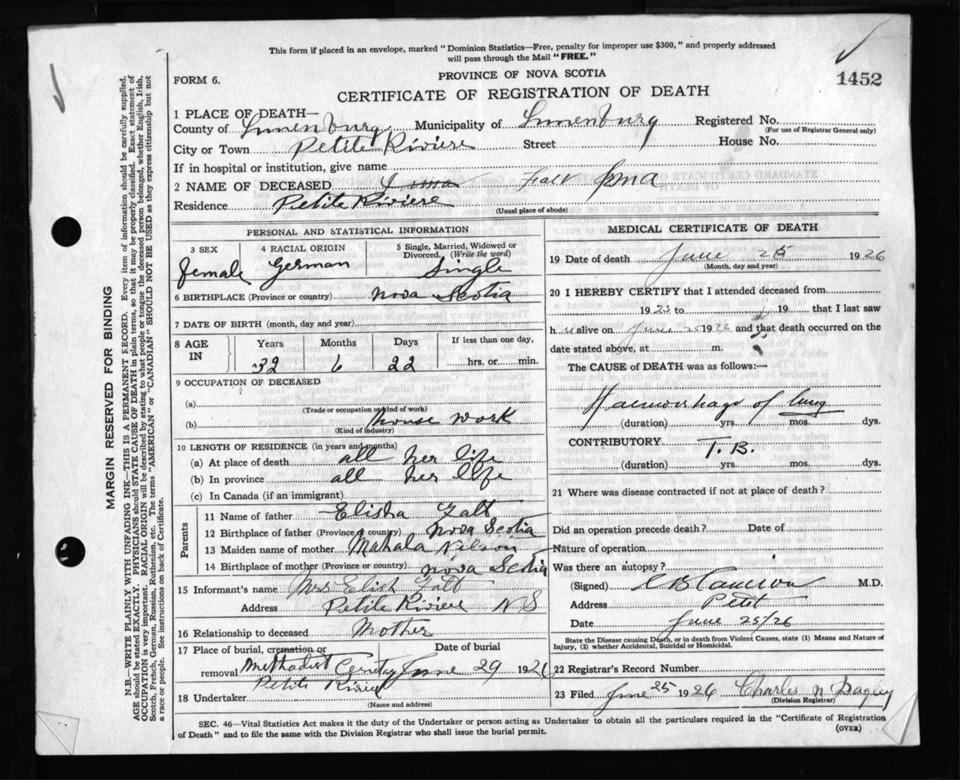 This form if placed in an envelope, marked "Dominion Statistics—Free, penalty for improper use $300," and properly addressed
will pass through the Mail "FREE."
FORM 6.
PROVINCE OF NOVA SCOTIA
1452
CERTIFICATE OF REGISTRATION OF DEATH
1 PLACE OF DEATH—
County of Lunenburg Municipality of Lunenburg Registered No.
(For use of Registrar General only)
City or Town Petite Riviere Street House No.
If in hospital or institution, give name
2 NAME OF DECEASED Falt Irna
Residence Petite Riviere
(Usual place of abode)
PERSONAL AND STATISTICAL INFORMATION
3 SEX 4 RACIAL ORIGIN 5 Single, Married, Widowed or Divorced. (Write the word)
female German Single
6 BIRTHPLACE (Province or country) Nova Scotia
7 DATE OF BIRTH (month, day and year)
8 AGE IN Years Months Days If less than one day,
32 6 22 hrs. or min.
9 OCCUPATION OF DECEASED
(a)
(Trade or occupation or kind of work)
(b) house work
(Kind of industry)
10 LENGTH OF RESIDENCE (in years and months)
(a) At place of death all her life
(b) In province all her life
(c) In Canada (if an immigrant)
Parents
11 Name of father Elisha Falt
12 Birthplace of father (Province or country) Nova Scotia
13 Maiden name of mother Mahala Nilson
14 Birthplace of mother (Province or country) Nova Scotia
15 Informant's name Mrs Elish Falt
Address Petite Riviere N S
16 Relationship to deceased Mother
17 Place of burial, cremation or removal Date of burial
Methodist Cemetery June 29 1926
Petite Rivier
18 Undertaker
(Name and address)
MEDICAL CERTIFICATE OF DEATH
19 Date of death June 25 1926
(Month, day and year)
20 I HEREBY CERTIFY that I attended deceased from
1923 to 19 that I last saw
h er alive on June 25 1926 and that death occurred on the
date stated above, at m.
The CAUSE of DEATH was as follows:—
Haemorrhage of lung
(duration) yrs. mos. dys.
CONTRIBUTORY T. B.
(duration) yrs. mos. dys.
21 Where was disease contracted if not at place of death?
Did an operation precede death? Date of
Nature of operation
Was there an autopsy?
(Signed) Cameron M.D.
Address Petit
Date June 25/26
State the Disease causing Death, or in death from Violent Causes, state (1) Means and Nature of
Injury, (2) whether Accidental, Suicidal or Homicidal.
22 Registrar's Record Number
23 Filed June 25 1926 Charles N
(Division Registrar)
SEC. 46—Vital Statistics Act makes it the duty of the Undertaker or person acting as Undertaker to obtain all the particulars required in the "Certificate of Registration
of Death" and to file the same with the Division Registrar who shall issue the burial permit.
(OVER)
MARGIN RESERVED FOR BINDING
N.B.—WRITE PLAINLY WITH UNFADING INK—THIS IS A PERMANENT RECORD. Every item of information should be carefully supplied.
AGE should be stated EXACTLY. PHYSICIANS should STATE CAUSE OF DEATH in plain terms, so that it may be properly classified. Exact statement of
OCCUPATION is very important. RACIAL ORIGIN will be described by stating to what people or tongue the deceased person belonged, whether English, Irish,
Scotch, French, German, Russian, Ruthenian, etc. The terms "AMERICAN" or "CANADIAN" SHOULD NOT BE USED as they express citizenship but not
a race or people. See instructions on back of Certificate.